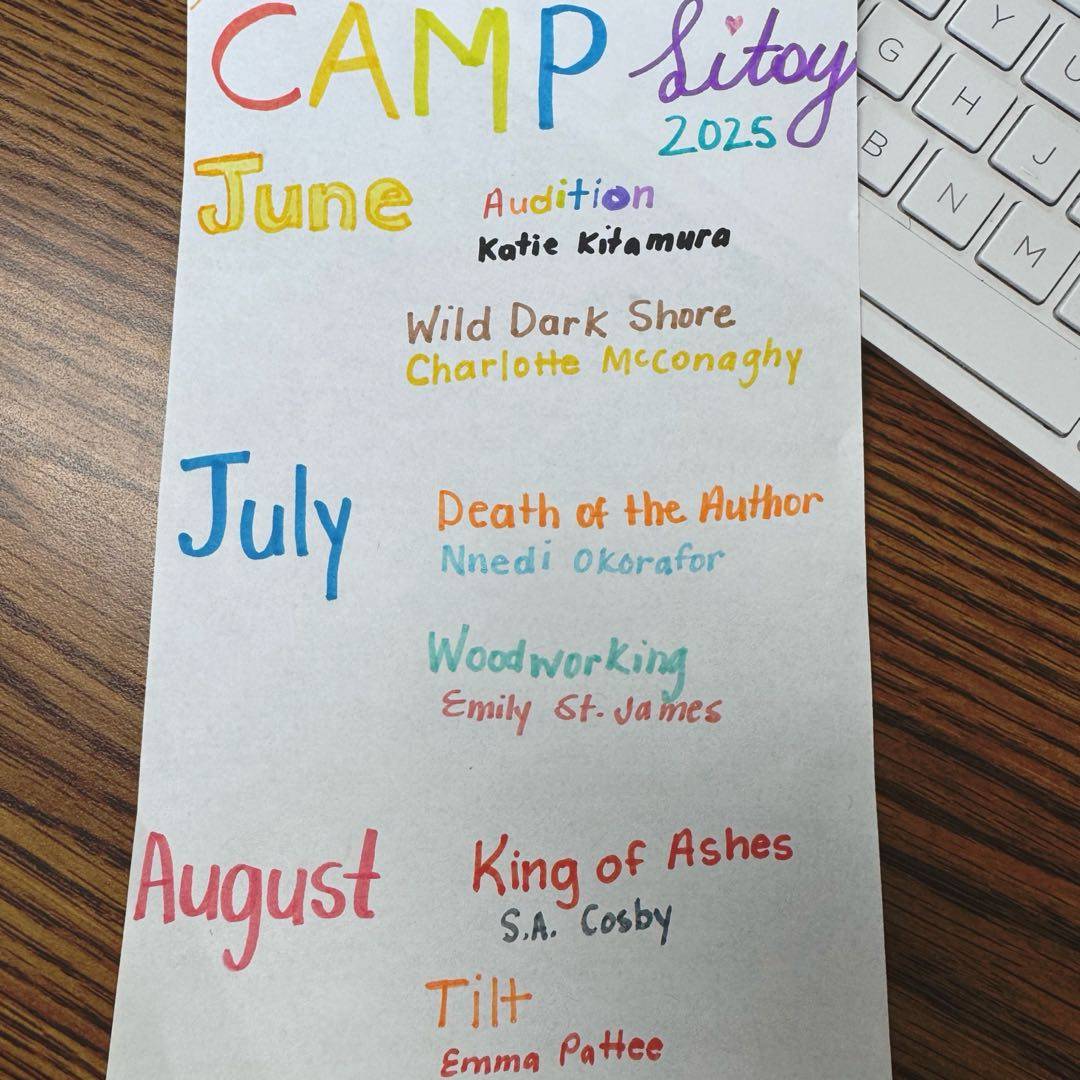 CAMP Litoy
2025
June
Audition
Katie Kitamura
Wild Dark Shore
Charlotte McConaghy
July
Death of the Author
Nnedi Okorafor
Woodworking
Emily St. James
August
King of Ashes
S.A. Cosby
Tilt
Emma Pattee
Y U
G H J
B N M